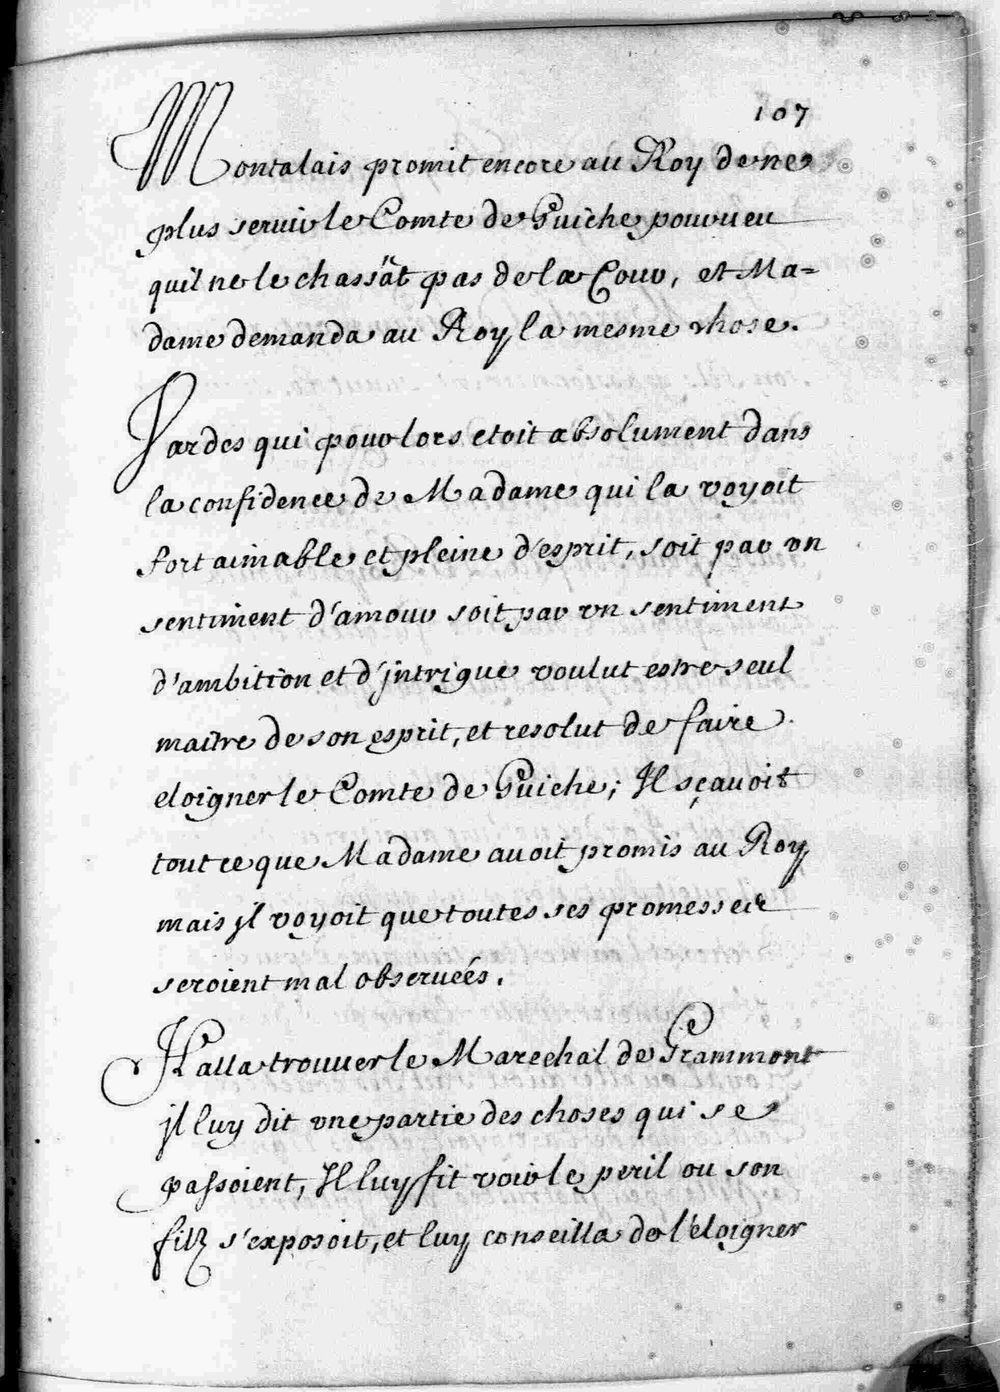 107
Montalais promit encore au Roy de ne
plus seruir le Comte de Guiche pourueu
quil ne le chassât pas de la Cour, et Ma=
dame demanda au Roy la mesme chose.
Vardes qui pour lors etoit absolument dans
la confidence de Madame qui la voyoit
fort aimable et pleine d'esprit, soit par vn
sentiment d'amour soit par vn sentiment
d'ambition et d'jntrigue voulut estre seul
maître de son esprit, et resolut de faire
eloigner le Comte de Guiche; Il sçauoit
tout ce que Madame auoit promis au Roy
mais jl voyoit que toutes ses promesses
seroient mal obseruées.
Il alla trouuer le Marechal de Grammont
jl luy dit vne partie des choses qui se
passoient, Il luy fit voir le peril ou son
filz s'exposoit, et luy conseilla de l'éloigner